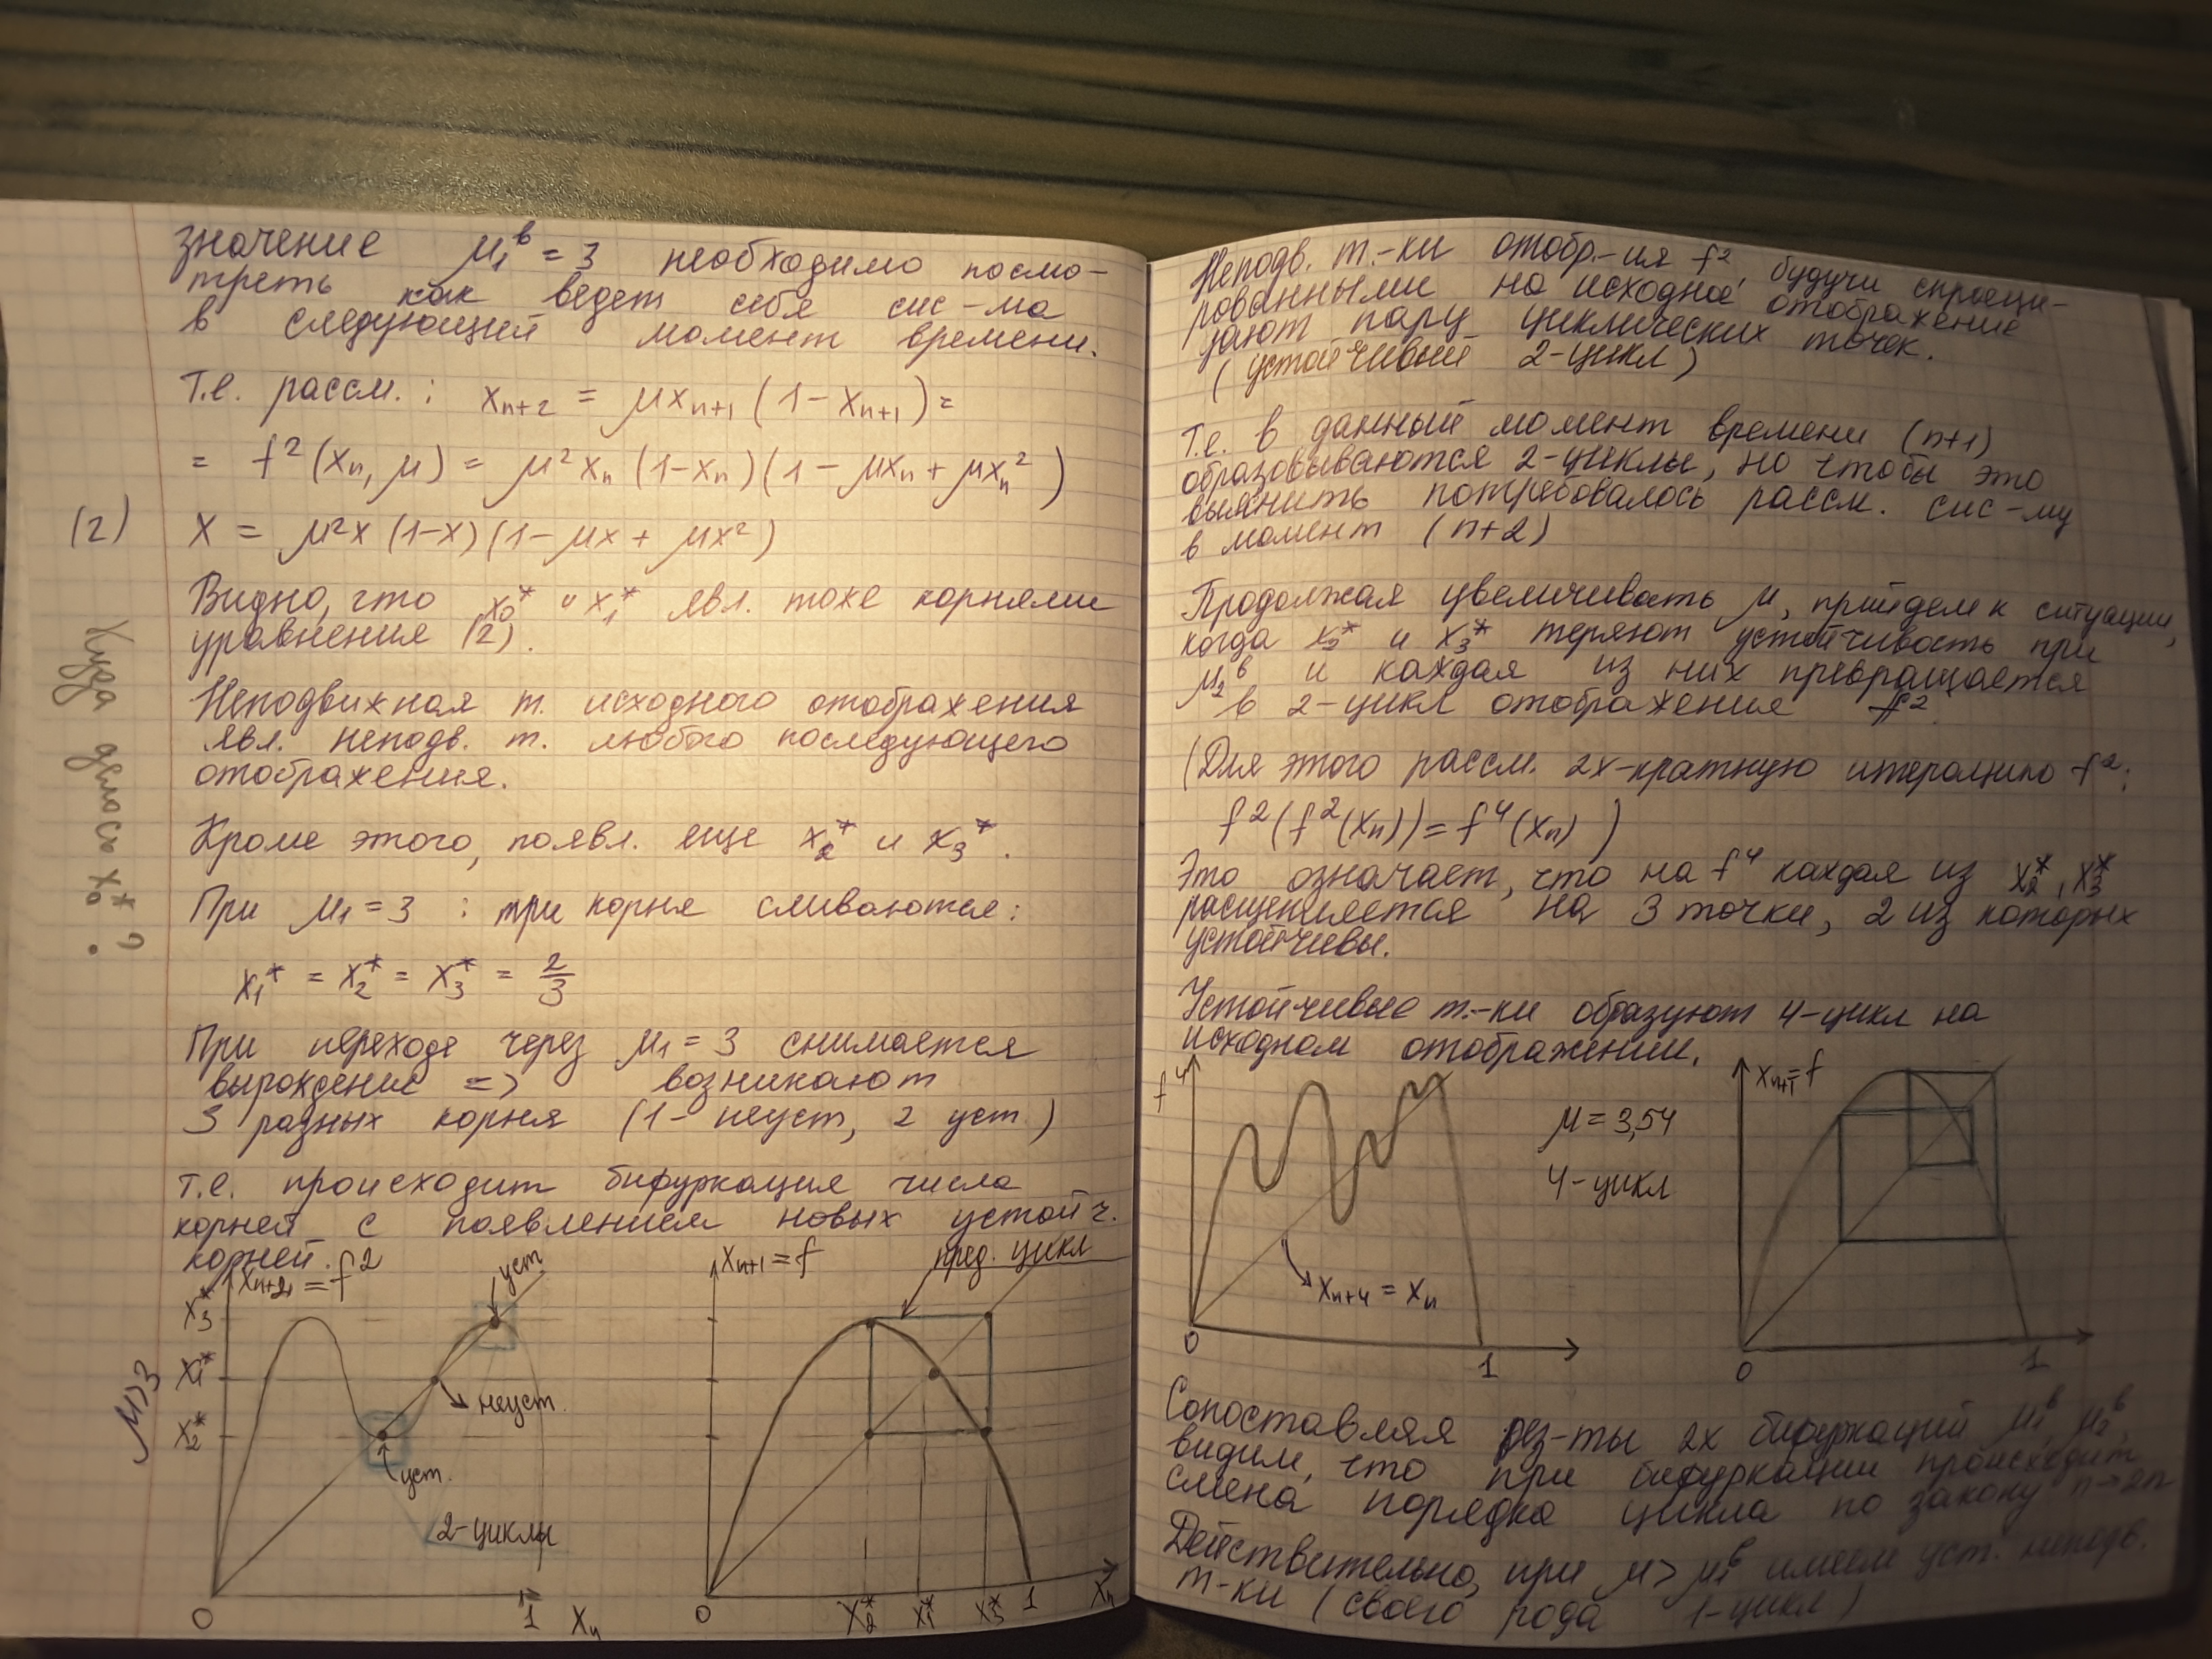 значение μ₁ᵇ = 3 необходимо посмо-
треть как ведет себя сис-ма
в следующий момент времени.
Т.е. рассм.: xₙ₊₂ = μxₙ₊₁(1-xₙ₊₁) =
= f²(xₙ, μ) = μ²xₙ(1-xₙ)(1-μxₙ+μxₙ²)
(2) X = μ²x(1-x)(1-μx+μx²)
Видно, что x₀* и x₁* явл. тоже корнями
уравнения (2).
Неподвижная т. исходного отображения
явл. неподв. т. любого последующего
отображения.
Кроме этого, появл. еще x₂* и x₃*.
Куда делось x₀*?
При μ₁ = 3 : три корня сливаются:
x₁* = x₂* = x₃* = 2/3
При переходе через μ₁ = 3 снимается
вырождение => возникают
3 разных корня (1- неуст, 2 уст)
т.е. происходит бифуркация числа
корней с появлением новых устойч.
корней.
μ>3
xₙ₊₂ = f²
x₃*
x₁*
x₂*
уст.
неуст.
уст.
2-циклы
0
1
xₙ
xₙ₊₁ = f
пред. цикл
0
x₂*
x₁*
x₃*
1
xₙ
Неподв. т.-ки отобр.-ия f², будучи спроеци-
рованными на исходное отображение
дают пару циклических точек.
(устойчивый 2-цикл)
Т.е. в данный момент времени (n+1)
образовываются 2-циклы, но чтобы это
выяснить потребовалось рассм. сис-му
в момент (n+2)
Продолжая увеличивать μ, прийдем к ситуации,
когда x₂* и x₃* теряют устойчивость при
μ₂ᵇ и каждая из них превращается
в 2-цикл отображение f².
(Для этого рассм. 2х-кратную итерацию f²:
f²(f²(xₙ)) = f⁴(xₙ) )
Это означает, что на f⁴ каждая из x₂*, x₃*
расщепляется на 3 точки, 2 из которых
устойчивы.
Устойчивые т.-ки образуют 4-цикл на
исходном отображении.
f⁴
xₙ₊₄ = xₙ
0
1
μ = 3,54
4-цикл
xₙ₊₁ = f
0
1
Сопоставляя рез-ты 2х бифуркаций μ₁ᵇ, μ₂ᵇ,
видим, что при бифуркации происходит
смена порядка цикла по закону n→2n
Действительно, при μ > μ₁ᵇ имеем уст. неподв.
т-ки (своего рода 1-цикл)